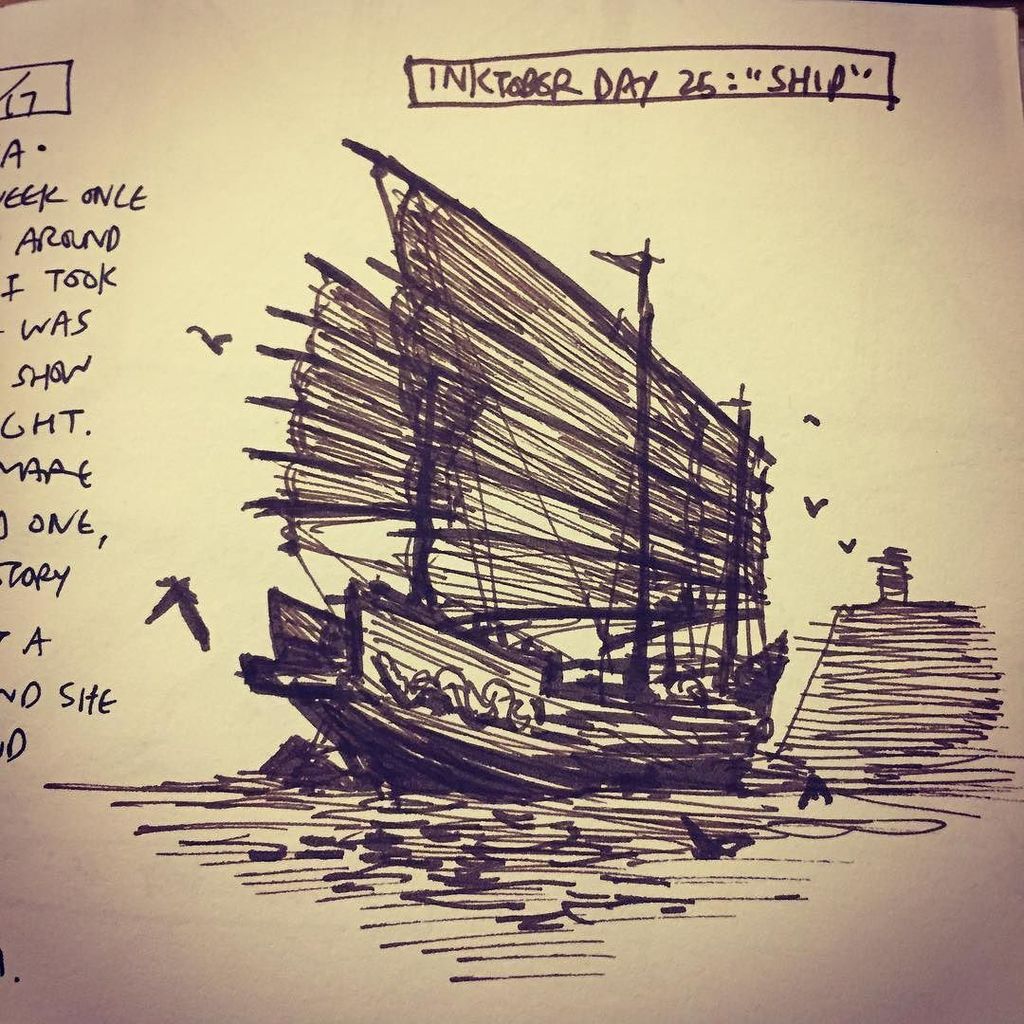 /17
INKTOBER DAY 25: "SHIP"
A.
WEEK ONCE
AROUND
I TOOK
WAS
SHOW
GHT.
MARE
ONE,
TORY
A
ND SITE
D